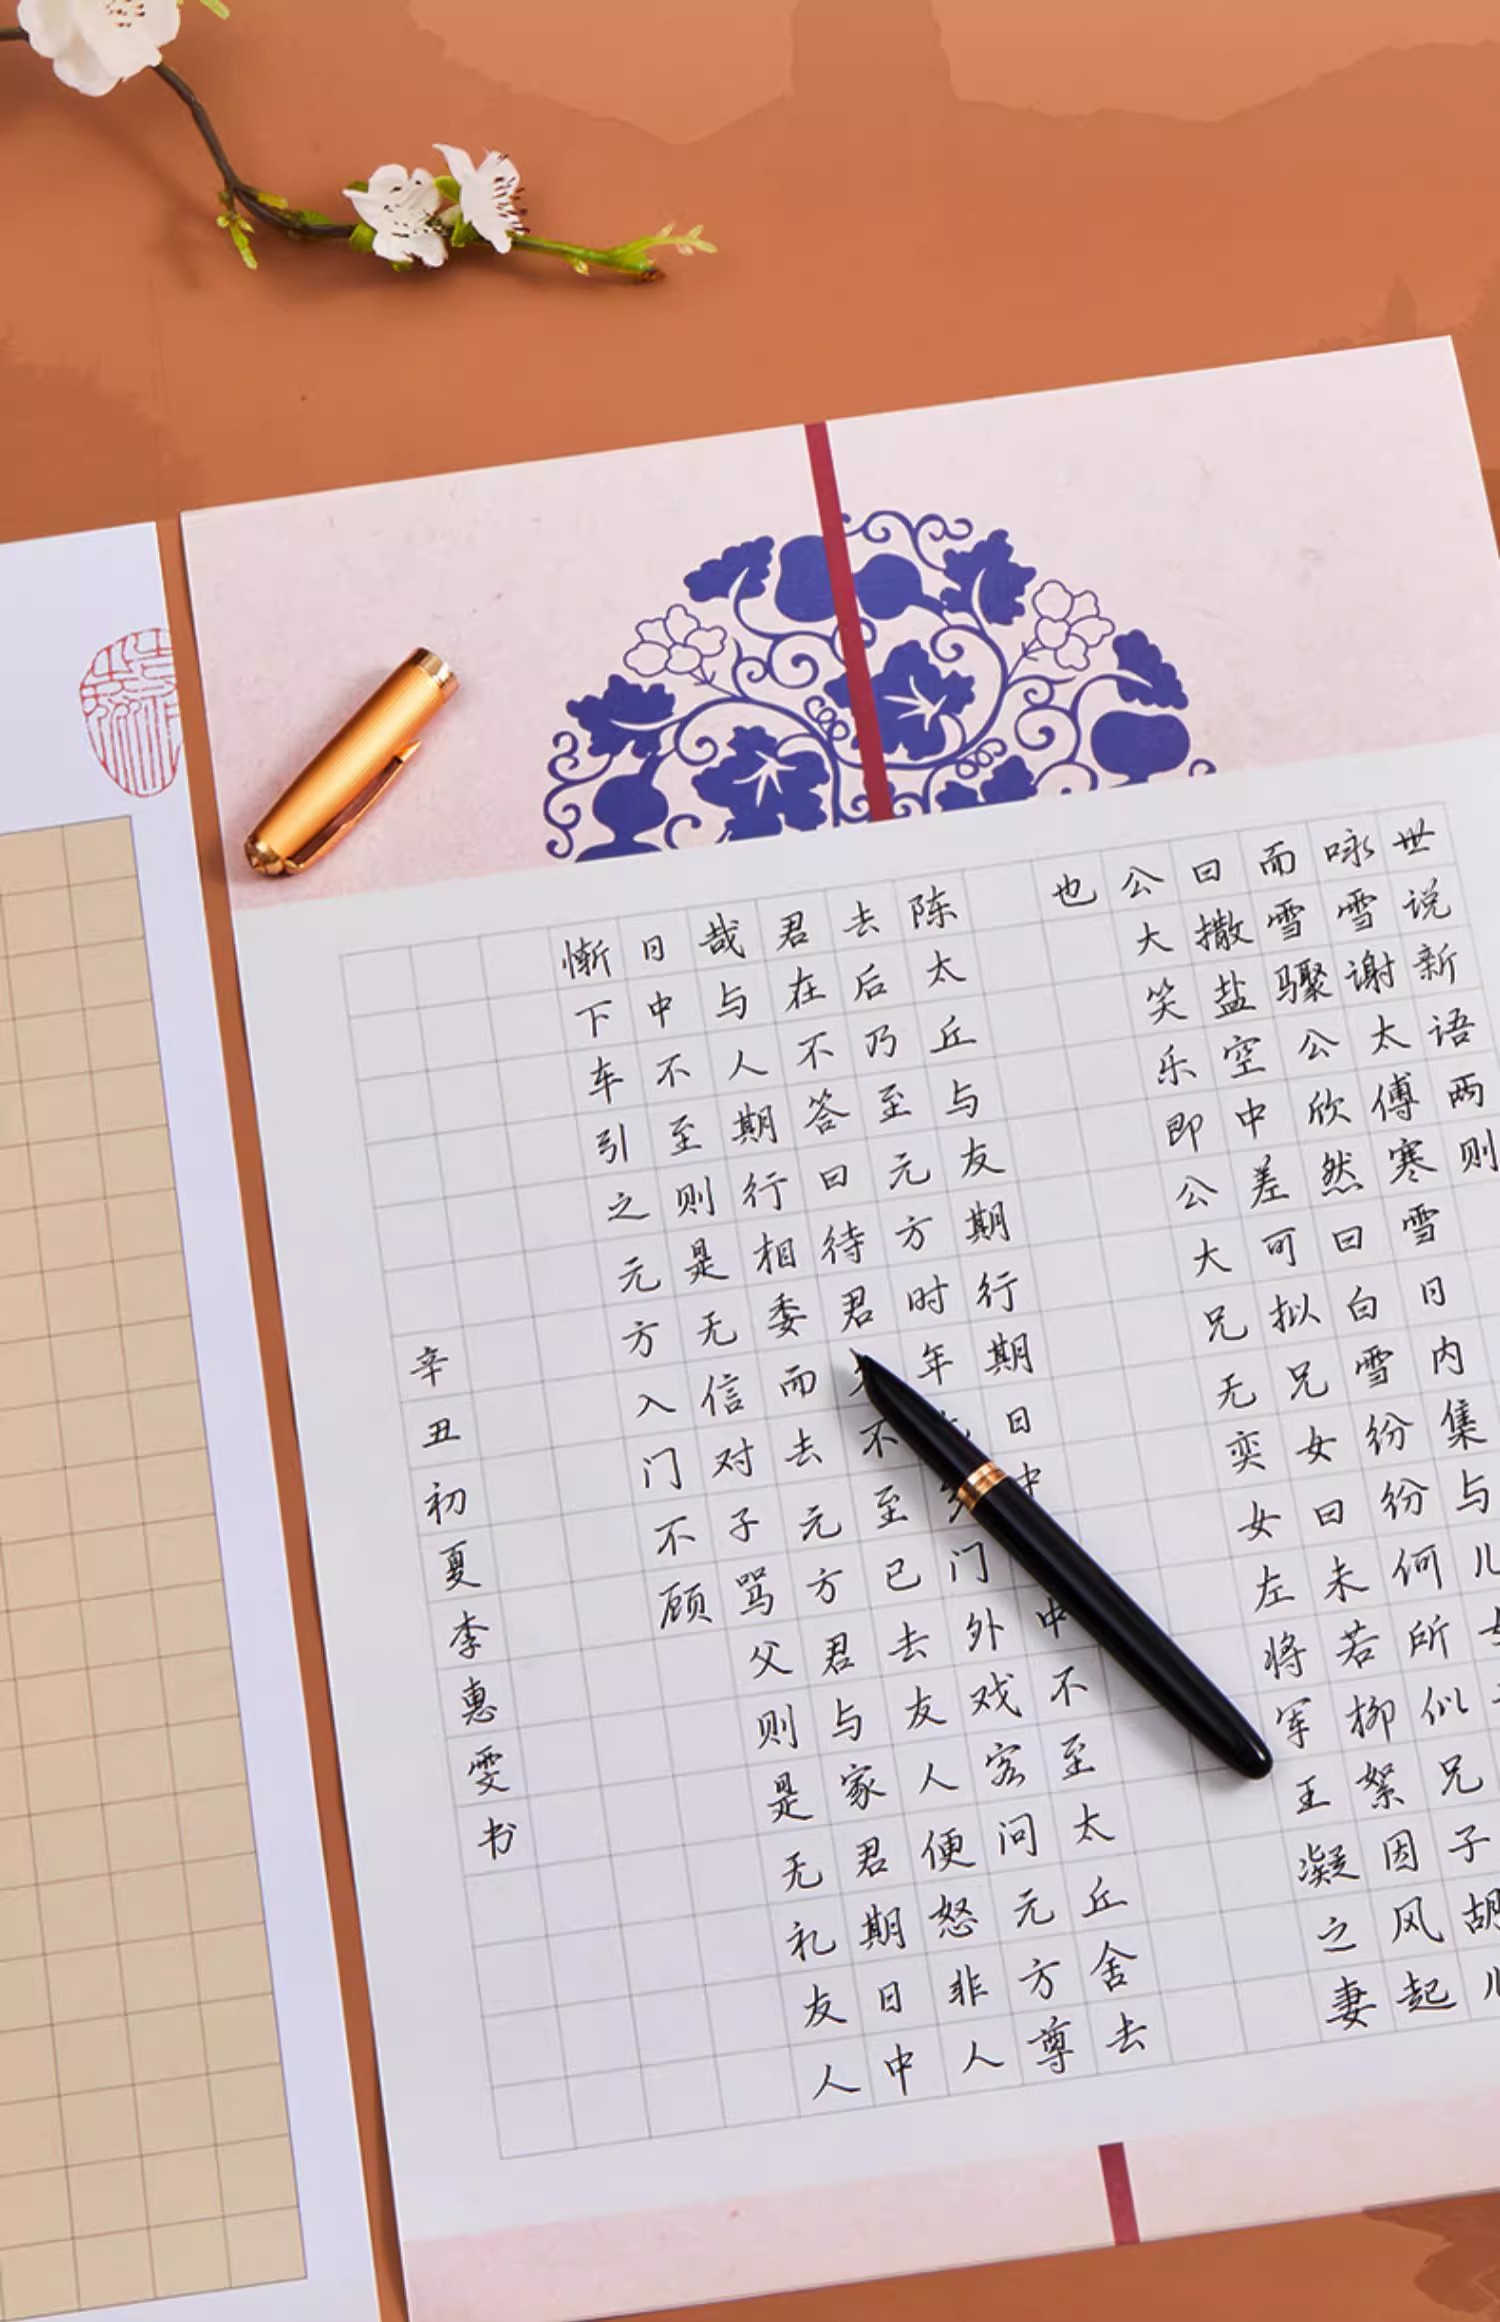 世说新语两则
咏雪谢太傅寒雪日内集与儿
而雪骤公欣然曰白雪纷纷何所似兄子胡儿
曰撒盐空中差可拟兄女曰未若柳絮因风起
公大笑乐即公大兄无奕女左将军王凝之妻
也
陈太丘与友期行期日中中不至太丘舍去
去后乃至元方时年门外戏客问元方尊
君在不答曰待君不至已去友人便怒非人
哉与人期行相委而去元方君与家君期日中
日中不至则是无信对子骂父则是无礼友人
惭下车引之元方入门不顾
辛丑初夏李惠雯书